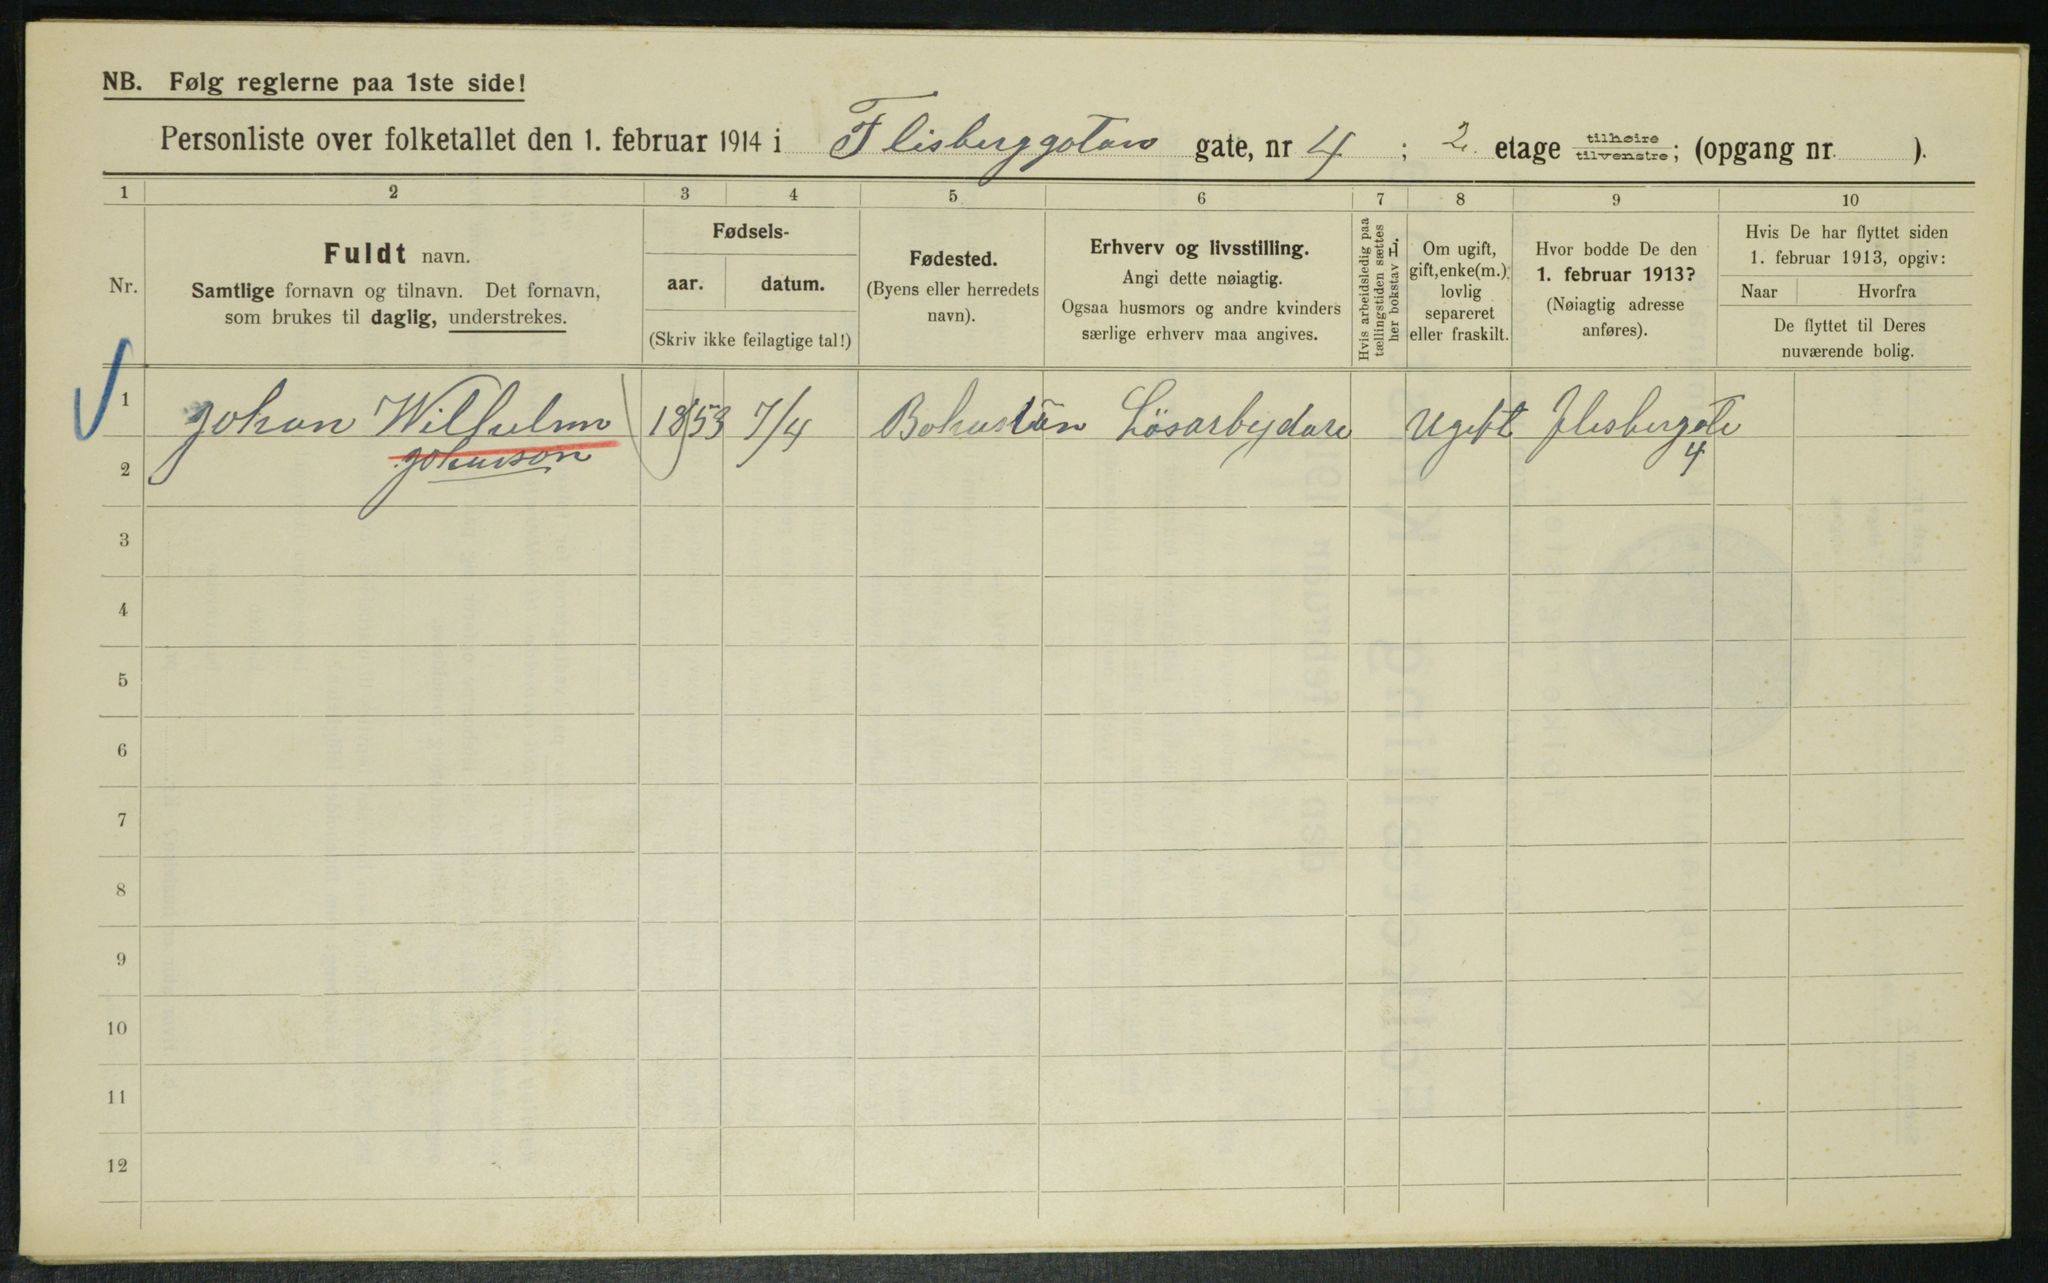 NB. Følg reglerne paa 1ste side!
Personliste over folketallet den 1. februar 1914 i Flisberggatan gate, nr 4 ; 2. etage tilhøire/tilvenstre; (opgang nr. ).
1 2 3 4 5 6 7 8 9 10
Nr.
Fuldt navn.
Samtlige fornavn og tilnavn. Det fornavn,
som brukes til daglig, understrekes.
Fødsels-
aar. datum.
(Skriv ikke feilagtige tal!)
Fødested.
(Byens eller herredets
navn).
Erhverv og livsstilling.
Angi dette nøiagtig.
Ogsaa husmors og andre kvinders
særlige erhverv maa angives.
Hvis arbeidsledig paa
tællingstiden sættes
her bokstav L.
Om ugift,
gift, enke(m.),
lovlig
separeret
eller fraskilt.
Hvor bodde De den
1. februar 1913?
(Nøiagtig adresse
anføres).
Hvis De har flyttet siden
1. februar 1913, opgiv:
Naar Hvorfra
De flyttet til Deres
nuværende bolig.
1 Johan Wilhelm 1853 7/4 Bohuslän Lösarbejdare Ugift Flisbergate
2 Johanson 4
3
4
5
6
7
8
9
10
11
12